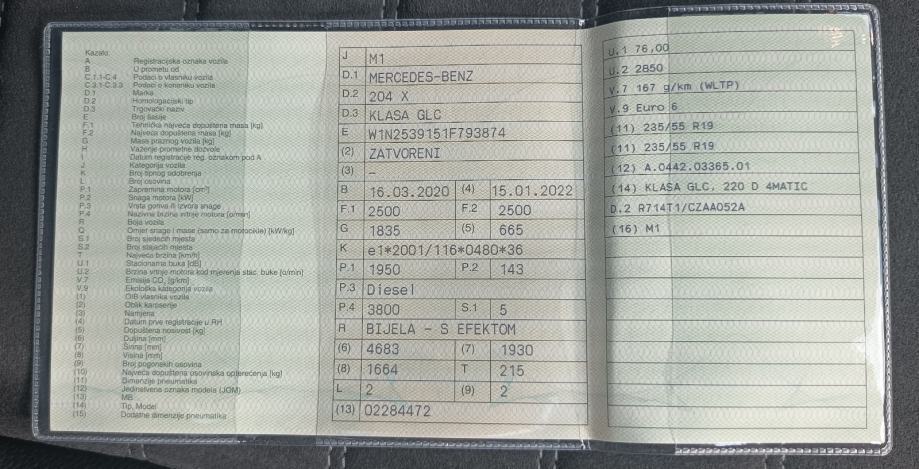 Kazalo:
A Registracijska oznaka vozila
B U prometu od
C.1.1-C.4 Podaci o vlasniku vozila
C.3.1-C.3.3 Podaci o korisniku vozila
D.1 Marka
D.2 Homologacijski tip
D.3 Trgovački naziv
E Broj šasije
F.1 Tehnička najveća dopuštena masa [kg]
F.2 Najveća dopuštena masa [kg]
G Masa praznog vozila [kg]
H Važenje prometne dozvole
I Datum registracije reg. oznakom pod A
J Kategorija vozila
K Broj tipnog odobrenja
L Broj osovina
P.1 Zapremina motora [cm³]
P.2 Snaga motora [kW]
P.3 Vrsta goriva ili izvora snage
P.4 Nazivna brzina vrtnje motora [o/min]
R Boja vozila
Q Omjer snage i mase (samo za motocikle) [kW/kg]
S.1 Broj sjedećih mjesta
S.2 Broj stajaćih mjesta
T Najveća brzina [km/h]
U.1 Stacionarna buka [dB]
U.2 Brzina vrtnje motora kod mjerenja stac. buke [o/min]
V.7 Emisija CO₂ [g/km]
V.9 Ekološka kategorija vozila
(1) OIB vlasnika vozila
(2) Oblik karoserije
(3) Namjena
(4) Datum prve registracije u RH
(5) Dopuštena nosivost [kg]
(6) Duljina [mm]
(7) Širina [mm]
(8) Visina [mm]
(9) Broj pogonskih osovina
(10) Najveća dopuštena osovinska opterećenja [kg]
(11) Dimenzije pneumatika
(12) Jedinstvena oznaka modela (JOM)
(13) MB
(14) Tip, Model
(15) Dodatne dimenzije pneumatika
J M1
D.1 MERCEDES-BENZ
D.2 204 X
D.3 KLASA GLC
E W1N2539151F793874
(2) ZATVORENI
(3) -
B 16.03.2020 (4) 15.01.2022
F.1 2500 F.2 2500
G 1835 (5) 665
K e1*2001/116*0480*36
P.1 1950 P.2 143
P.3 Diesel
P.4 3800 S.1 5
R BIJELA - S EFEKTOM
(6) 4683 (7) 1930
(8) 1664 T 215
L 2 (9) 2
(13) 02284472
U.1 76,00
U.2 2850
V.7 167 g/km (WLTP)
V.9 Euro 6
(11) 235/55 R19
(11) 235/55 R19
(12) A.0442.03365.01
(14) KLASA GLC, 220 D 4MATIC
D.2 R714T1/CZAA052A
(16) M1